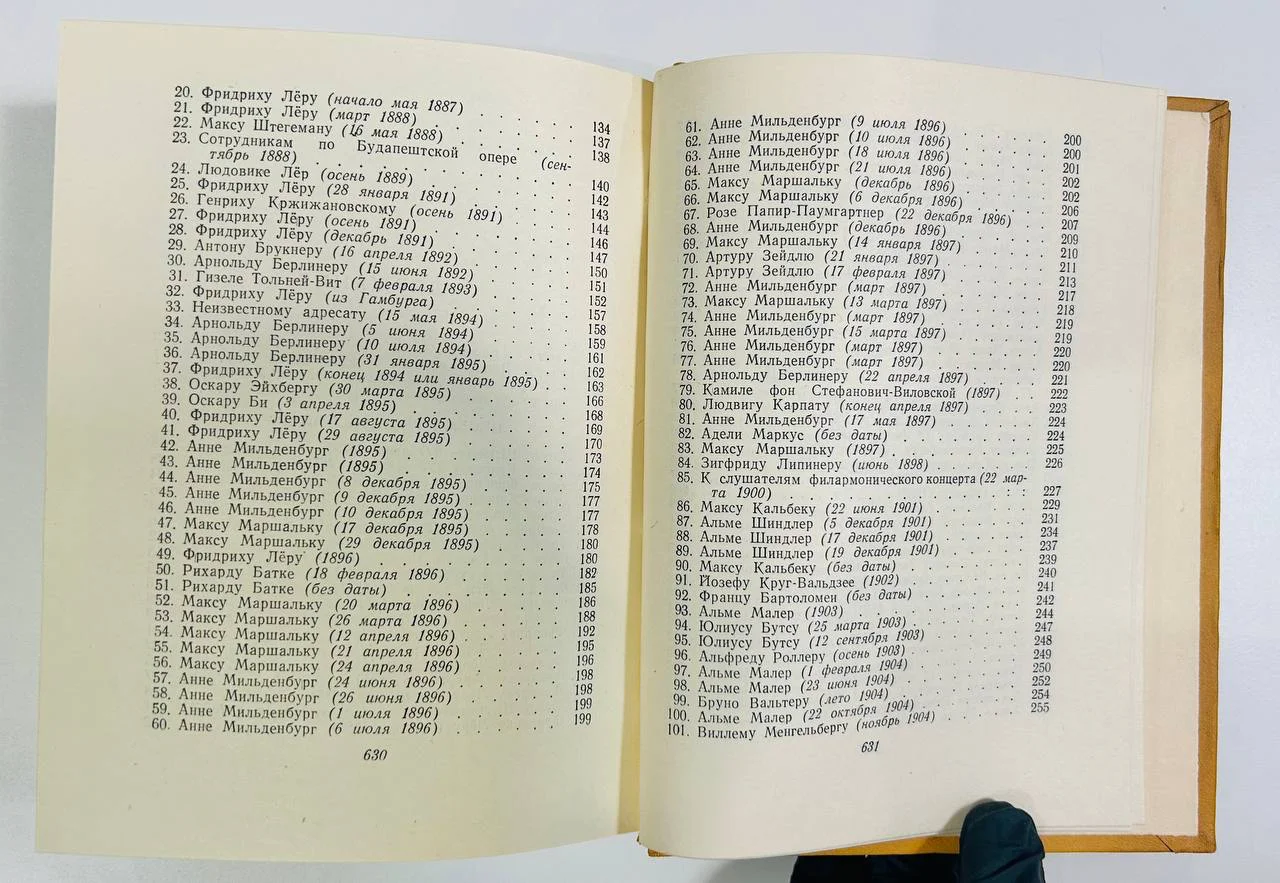 20. Фридриху Лёру (начало мая 1887) . . . . . . 134
21. Фридриху Лёру (март 1888) . . . . . . 137
22. Максу Штегеману (16 мая 1888) . . . . . . 138
23. Сотрудникам по Будапештской опере (сен-
тябрь 1888) . . . . . . 140
24. Людовике Лёр (осень 1889) . . . . . . 142
25. Фридриху Лёру (28 января 1891) . . . . . . 143
26. Генриху Кржижановскому (осень 1891) . . . . 144
27. Фридриху Лёру (осень 1891) . . . . . . 146
28. Фридриху Лёру (декабрь 1891) . . . . . . 147
29. Антону Брукнеру (16 апреля 1892) . . . . . . 150
30. Арнольду Берлинеру (15 июня 1892) . . . . . 151
31. Гизеле Тольней-Вит (7 февраля 1893) . . . . . 152
32. Фридриху Лёру (из Гамбурга) . . . . . . 157
33. Неизвестному адресату (15 мая 1894) . . . . . 158
34. Арнольду Берлинеру (5 июня 1894) . . . . . 159
35. Арнольду Берлинеру (10 июля 1894) . . . . . 161
36. Арнольду Берлинеру (31 января 1895) . . . . . 162
37. Фридриху Лёру (конец 1894 или январь 1895) . . 163
38. Оскару Эйхбергу (30 марта 1895) . . . . . 166
39. Оскару Би (3 апреля 1895) . . . . . . 168
40. Фридриху Лёру (17 августа 1895) . . . . . 169
41. Фридриху Лёру (29 августа 1895) . . . . . 170
42. Анне Мильденбург (1895) . . . . . . 173
43. Анне Мильденбург (1895) . . . . . . 174
44. Анне Мильденбург (8 декабря 1895) . . . . . 175
45. Анне Мильденбург (9 декабря 1895) . . . . . 177
46. Анне Мильденбург (10 декабря 1895) . . . . . 177
47. Максу Маршальку (17 декабря 1895) . . . . . 178
48. Максу Маршальку (29 декабря 1895) . . . . . 180
49. Фридриху Лёру (1896) . . . . . . 180
50. Рихарду Батке (18 февраля 1896) . . . . . . 182
51. Рихарду Батке (без даты) . . . . . . 185
52. Максу Маршальку (20 марта 1896) . . . . . 186
53. Максу Маршальку (26 марта 1896) . . . . . 188
54. Максу Маршальку (12 апреля 1896) . . . . . 192
55. Максу Маршальку (21 апреля 1896) . . . . . 195
56. Максу Маршальку (24 апреля 1896) . . . . . 196
57. Анне Мильденбург (24 июня 1896) . . . . . . 198
58. Анне Мильденбург (26 июня 1896) . . . . . . 198
59. Анне Мильденбург (1 июля 1896) . . . . . . 199
60. Анне Мильденбург (6 июля 1896) . . . . . . 199
630
61. Анне Мильденбург (9 июля 1896) . . . . . . 200
62. Анне Мильденбург (10 июля 1896) . . . . . . 200
63. Анне Мильденбург (18 июля 1896) . . . . . . 201
64. Анне Мильденбург (21 июля 1896) . . . . . . 202
65. Максу Маршальку (декабрь 1896) . . . . . . 202
66. Максу Маршальку (6 декабря 1896) . . . . . 206
67. Розе Папир-Паумгартнер (22 декабря 1896) . . 207
68. Анне Мильденбург (декабрь 1896) . . . . . . 209
69. Максу Маршальку (14 января 1897) . . . . . 210
70. Артуру Зейдлю (21 января 1897) . . . . . . 211
71. Артуру Зейдлю (17 февраля 1897) . . . . . . 213
72. Анне Мильденбург (март 1897) . . . . . . 217
73. Максу Маршальку (13 марта 1897) . . . . . . 218
74. Анне Мильденбург (март 1897) . . . . . . 219
75. Анне Мильденбург (15 марта 1897) . . . . . . 219
76. Анне Мильденбург (март 1897) . . . . . . 220
77. Анне Мильденбург (март 1897) . . . . . . 220
78. Арнольду Берлинеру (22 апреля 1897) . . . . . 221
79. Камиле фон Стефанович-Виловской (1897) . . . 222
80. Людвигу Карпату (конец апреля 1897) . . . . . 223
81. Анне Мильденбург (17 мая 1897) . . . . . . 224
82. Адели Маркус (без даты) . . . . . . 224
83. Максу Маршальку (1897) . . . . . . 225
84. Зигфриду Липинеру (июнь 1898) . . . . . . 226
85. К слушателям филармонического концерта (22 мар-
та 1900) . . . . . . : : 227
86. Максу Кальбеку (22 июня 1901) . . . . . . 229
87. Альме Шиндлер (5 декабря 1901) . . . . . . 231
88. Альме Шиндлер (17 декабря 1901) . . . . . . 234
89. Альме Шиндлер (19 декабря 1901) . . . . . . 237
90. Максу Кальбеку (без даты) . . . . . . 239
91. Йозефу Круг-Вальдзее (1902) . . . . . . 240
92. Францу Бартоломеи (без даты) . . . . . . 241
93. Альме Малер (1903) . . . . . . 242
94. Юлиусу Бутсу (25 марта 1903) . . . . . . 244
95. Юлиусу Бутсу (12 сентября 1903) . . . . . . 247
96. Альфреду Роллеру (осень 1903) . . . . . . 248
97. Альме Малер (1 февраля 1904) . . . . . . 249
98. Альме Малер (23 июня 1904) . . . . . . 250
99. Бруно Вальтеру (лето 1904) . . . . . . 252
100. Альме Малер (22 октября 1904) . . . . . . 254
101. Виллему Менгельбергу (ноябрь 1904) . . . . . 255
631